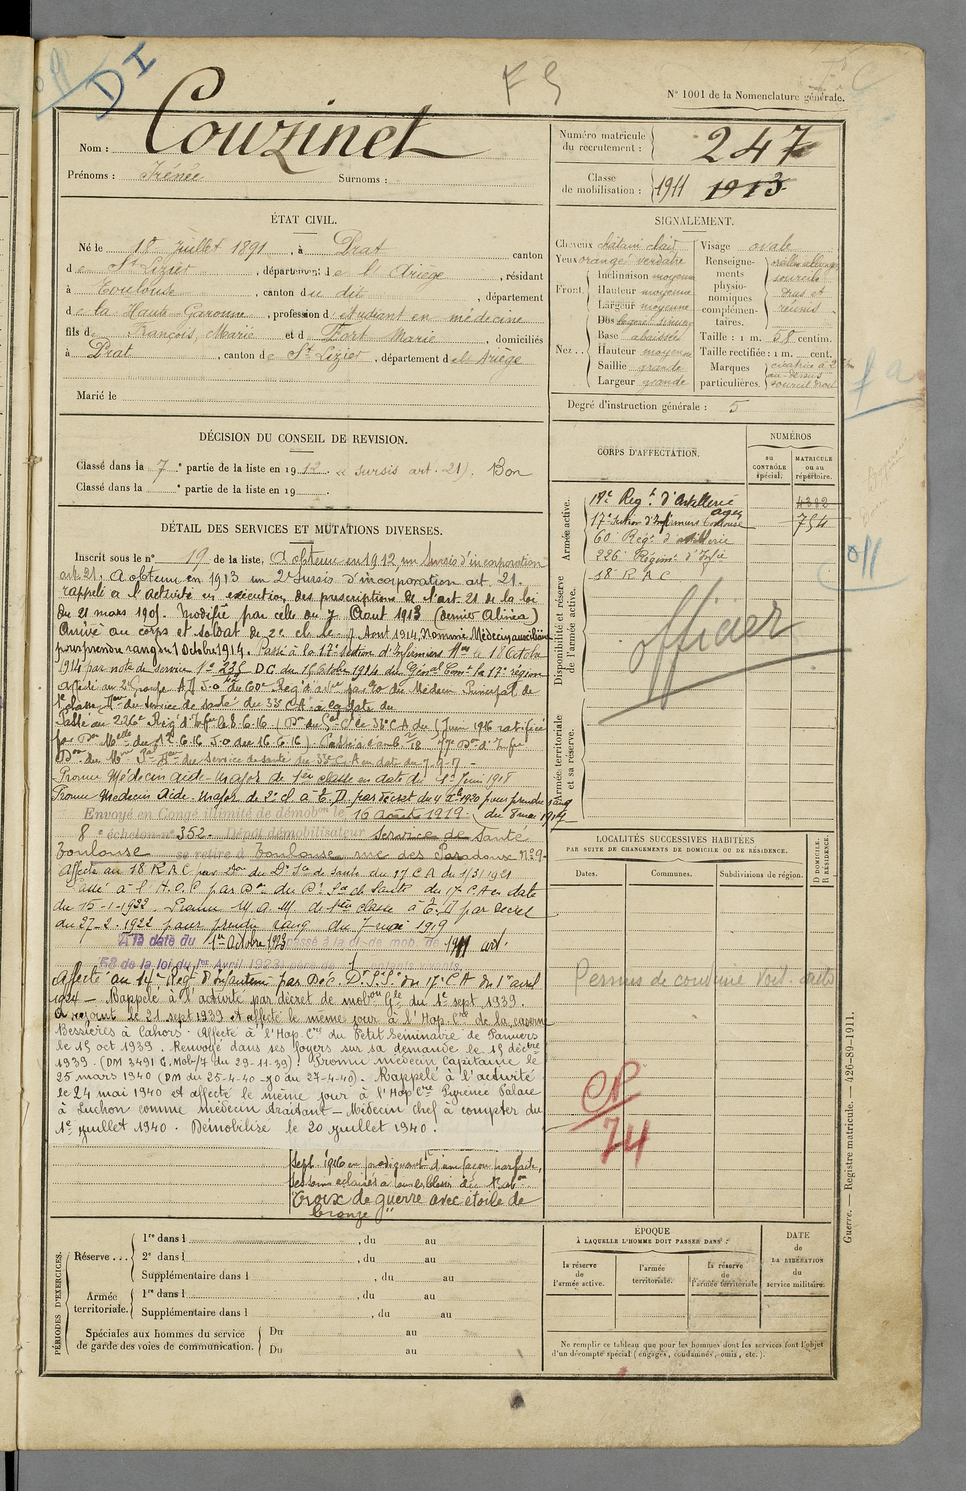 DI
FS
N° 1001 de la Nomenclature générale.
Nom : Couzinet
Prénoms : Irénée Surnoms :
Numéro matricule du recrutement : 247
Classe de mobilisation : 1911 1913
ÉTAT CIVIL.
Né le 18 Juillet 1891, à Prat canton
de St Lizier, département de l'Ariège, résidant
à Toulouse, canton du dit, département
de la Haute Garonne, profession d'étudiant en médecine
fils de François, Marie et de Fort Marie, domiciliés
à Prat, canton de St Lizier, département de l'Ariège
Marié le
SIGNALEMENT.
Cheveux châtain clair
Yeux orangé verdâtre
Front
Inclinaison moyenne
Hauteur moyenne
Largeur moyenne
Nez
Dos légèrt sinueux
Base abaissée
Hauteur moyenne
Saillie grande
Largeur grande
Visage ovale
Renseignements physionomiques complémentaires.
sourcils
drus et
réunis
Taille : 1 m. 58 centim.
Taille rectifiée : 1 m. cent.
Marques particulières.
cicatrice à 2
au-dessus
sourcil droit
Degré d'instruction générale : 5
DÉCISION DU CONSEIL DE REVISION.
Classé dans la 7e partie de la liste en 1912. sursis art. 21). Bon
Classé dans la e partie de la liste en 19
CORPS D'AFFECTATION.
NUMÉROS
au CONTRÔLE spécial.
MATRICULE ou au répertoire.
Armée active.
Disponibilité et réserve de l'armée active.
Armée territoriale et sa réserve.
Regt d'Artillerie 4392
17e Section d'Infirmiers 754
60e Regt d'artillerie
226e Régimt d'Infie
18e R A C
officier
off
DÉTAIL DES SERVICES ET MUTATIONS DIVERSES.
Inscrit sous le n° 19 de la liste, A obtenu en 1912 un sursis d'incorporation
art. 21. A obtenu en 1913 un 2e Sursis d'incorporation art. 21.
rappelé à l'activité en exécution des prescriptions de l'art. 21 de la loi
du 21 mars 1905. Modifié par celle du 7 Aout 1913 (dernier Alinéa)
Arrivé au corps et soldat de 2e cl. le Aout 1914, Nommé Médecin auxiliaire
pour prendre rang du 1 Octobre 1914. Passé à la 17e section d'Infirmiers le 18 Octobre
1914 par note de service N° 235 DC du 15 Octobre 1914 du Génal Comt la 17e région
Affecté au 2e Groupe du 60e Reg d'a du Médecin Principal de
1e classe du service de santé du 33e CA
Passé au 226e Reg d'Infie le 8-6-16
Don du Mon service de santé du 33e C.A en date du 7.9.17 -
Promu Médecin aide-major de 1ère classe en date du 1er Juin 1918
Promu Médecin Aide-Major de 2e cl à T.D. par décret du 1920 pour prendre rang
Envoyé en Congé illimité de démobon le 16 août 1919. du 8 mai 1917
8e échelon n° 352. Dépôt démobilisateur Service de Santé
Toulouse se retire à Toulouse rue des Paradoux N° 9
Affecté au 18 R A C par Don du Dr Sce de Santé du 17 C A du 1/3/1921
Passé à l'H.O.E par Don du Dr Sce de Santé du 17e C A en date
du 15-1-1922. Promu M.A.M de 1ère classe à T.D par décret
du 27-2-1922 pour prendre rang du 7 mai 1919
A la date du 1er Octobre 1923 passé à la cl. de mob. de 1911 art.
58 de la loi du 1er Avril 1923) père de 1 enfants vivants.
Affecté au 14e Regt d'Infanterie par Déc. D.S.S. du 17e C A du 1er avril
1924 - Rappelé à l'activité par décret de mobon Gle du 1e sept 1939.
A rejoint le 21 sept 1939 et affecté le même jour à l'Hop. Cre de la caserne
Bessières à Cahors. Affecté à l'Hop Cre du Petit Séminaire de Pamiers
le 15 oct 1939. Renvoyé dans ses foyers sur sa demande le 15 décbre
1939. (DM 3491 G. Mob/7 du 29-11-39). Promu médecin Capitaine le
25 mars 1940 (DM du 25-4-40 - JO du 27-4-40). Rappelé à l'activité
le 24 mai 1940 et affecté le même jour à l'Hop Cre Pyrénée Palace
à Luchon comme médecin traitant - Médecin chef à compter du
1e juillet 1940. Démobilisé le 20 juillet 1940.
Sept. 1916 en prodiguant d'une façon parfaite,
ses soins éclairés à tous les blessés du Baton
"Croix de guerre avec étoile de
bronze"
LOCALITÉS SUCCESSIVES HABITÉES
PAR SUITE DE CHANGEMENTS DE DOMICILE OU DE RÉSIDENCE.
Dates.
Communes.
Subdivisions de région.
D DOMICILE.
R RÉSIDENCE.
Permis de conduire
CR
74
PÉRIODES D'EXERCICES.
Réserve...
1re dans l , du au
2e dans l , du au
Supplémentaire dans l , du au
Armée territoriale.
1re dans l , du au
Supplémentaire dans l , du au
Spéciales aux hommes du service de garde des voies de communication.
Du au
Du au
ÉPOQUE
À LAQUELLE L'HOMME DOIT PASSER DANS :
la réserve de l'armée active.
l'armée territoriale.
la réserve de l'armée territoriale
DATE de LA LIBÉRATION du service militaire.
Ne remplir ce tableau que pour les hommes dont les services font l'objet
d'un décompte spécial (engagés, condamnés, omis, etc.).
Guerre. — Registre matricule. — 426-89-1911.